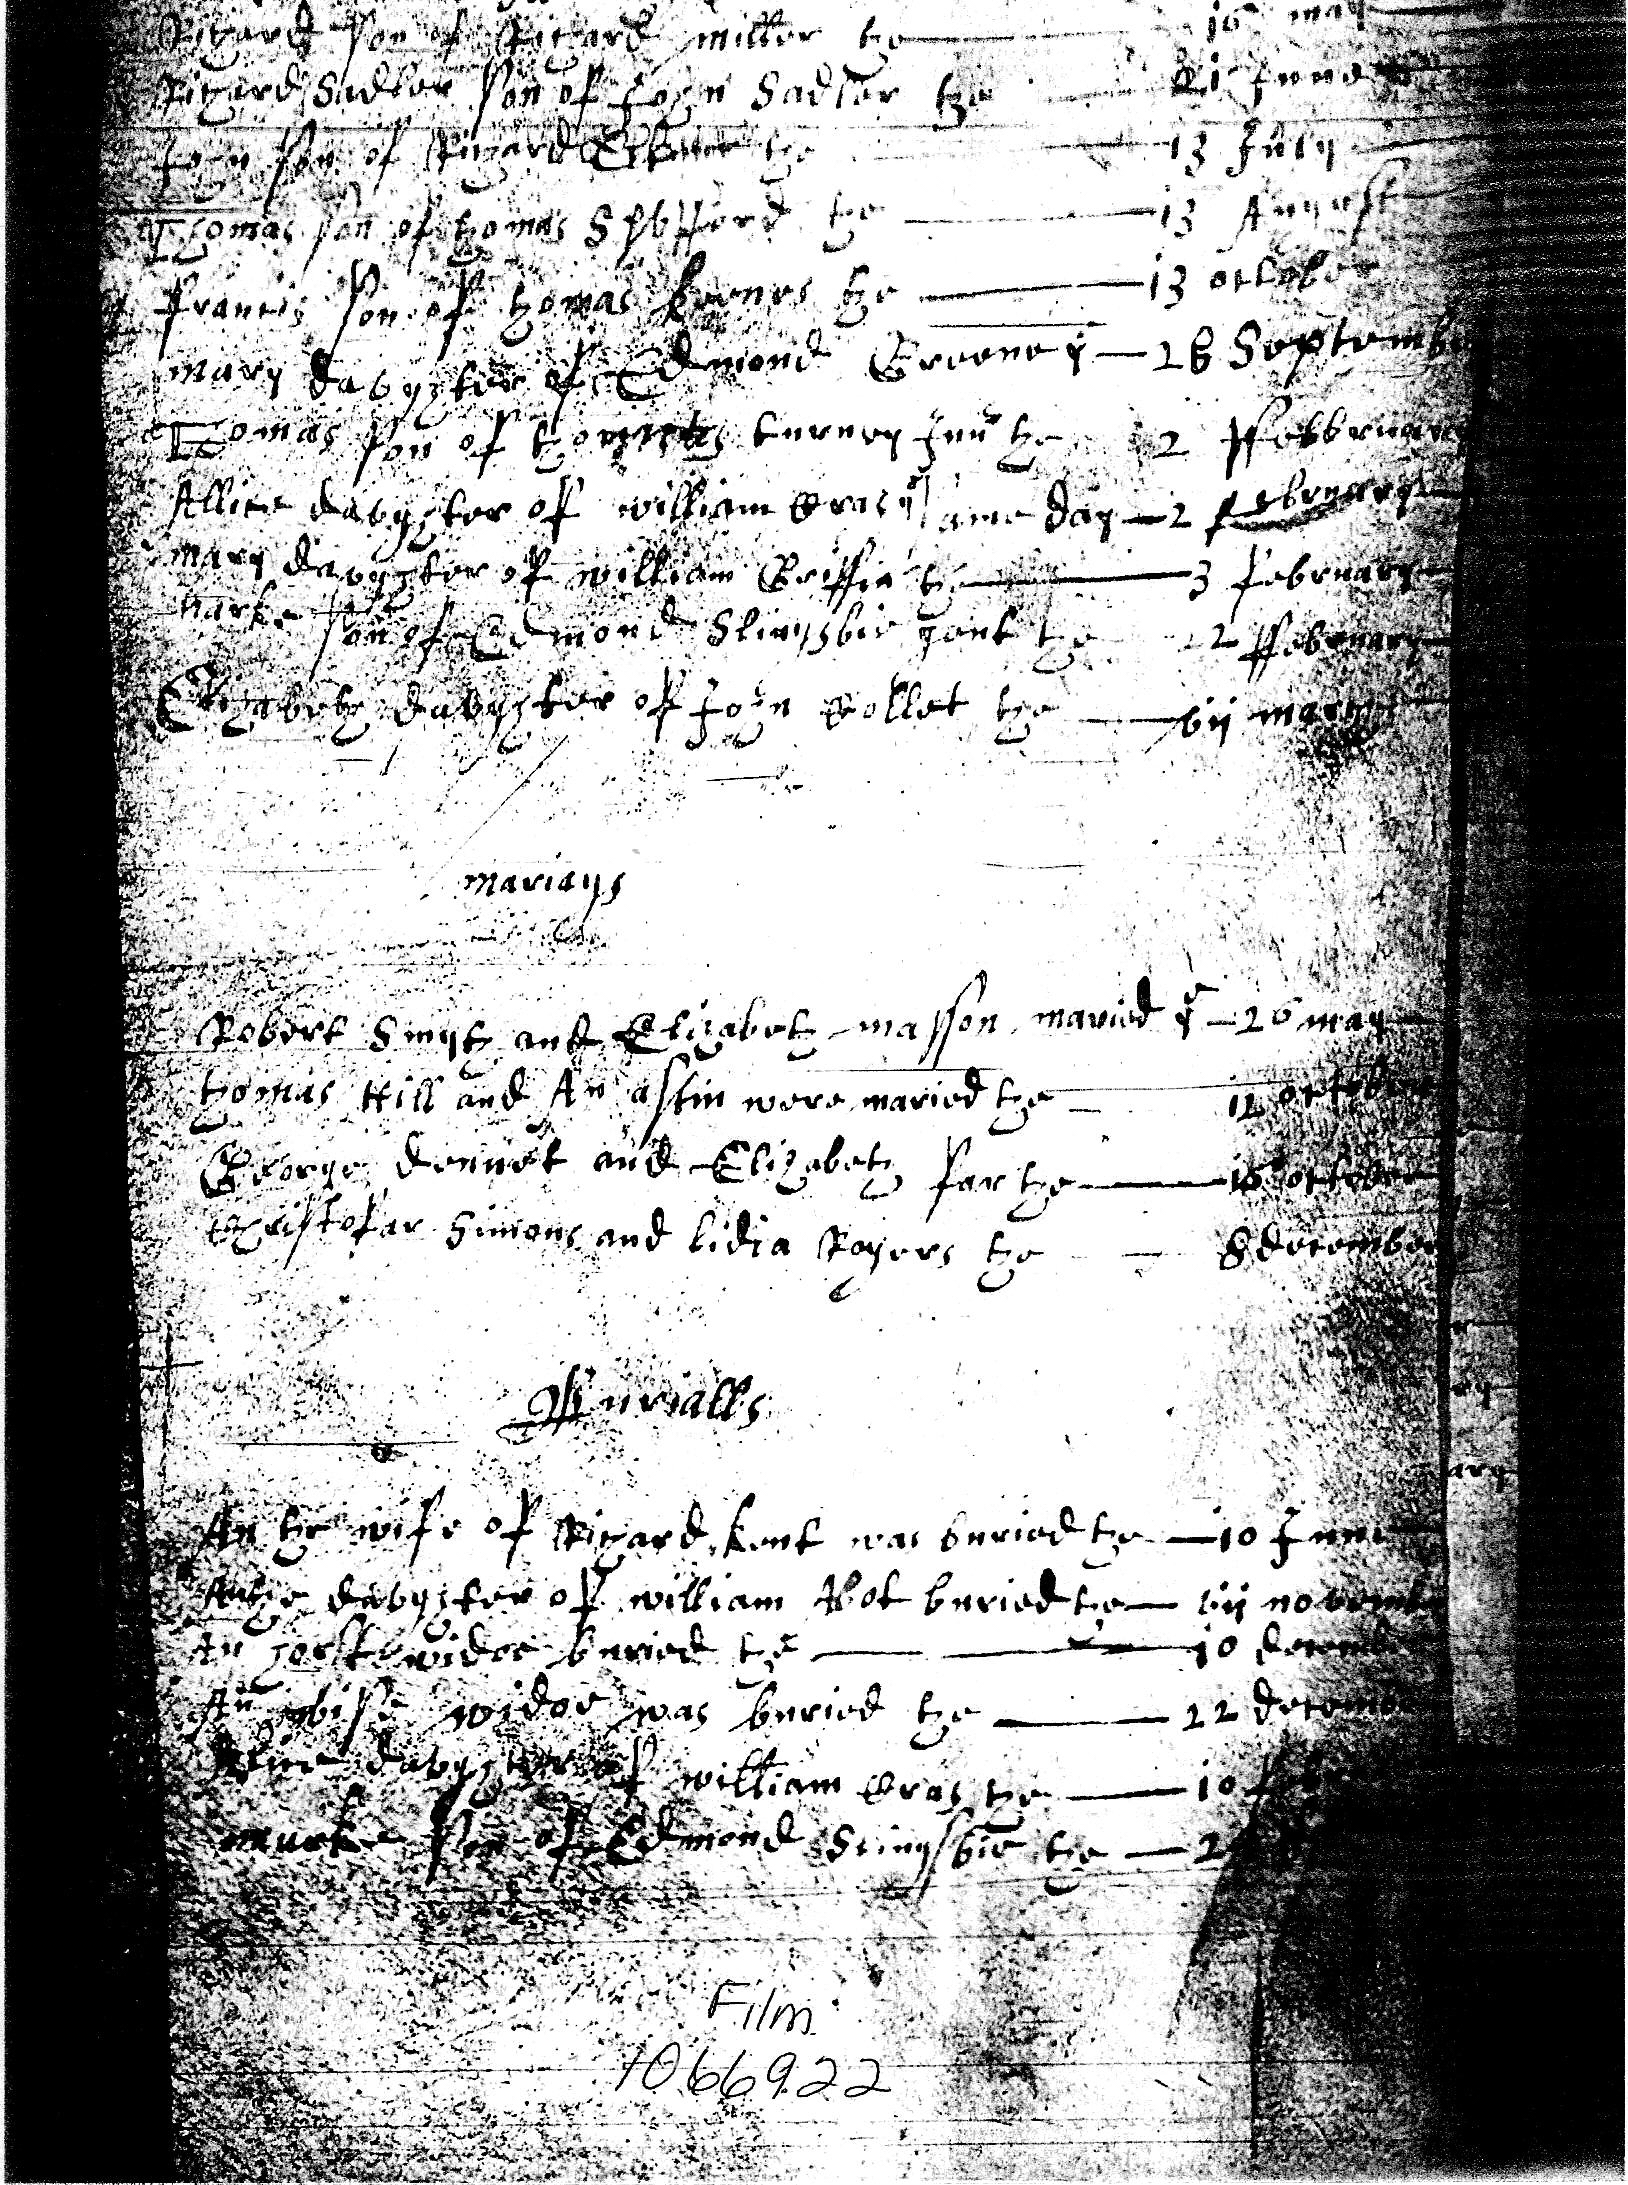 Richard son of Richard miller the 16 may
Richard Sadler son of John Sadler the 21 June
John son of Richard the 13 July
Thomas son of thomas the 13 August
francis son of thomas the 13 october
mary davghter of Edmond Greene ye 28 Septemb
Thomas son of thomas turney Junr the 2 ffebbruary
Allice davghter of william Gras ye same day 2 february
mary davghter of william Griffin the 3 february
marke son of Edmond Slingsbie gent the 22 ffebruary
Elizabeth davghter of John Collet the vii march
mariags
Robert Smyth and Elizabeth masson maried ye 26 may
thomas Hill and An astin were maried the 12 october
George dennet and Elizabeth far the 16 october
Christofar Simons and lidia Rogers the 8 december
Burialls
An the wife of Richard kent was buried the 10 June
davghter of william buried the vii novemb
An widoe buried the 10 decembe
An wise widoe was buried the 22 decembe
davghter of william Gras the 10 feb
marke son of Edmond Slingsbie the
Film
1066922